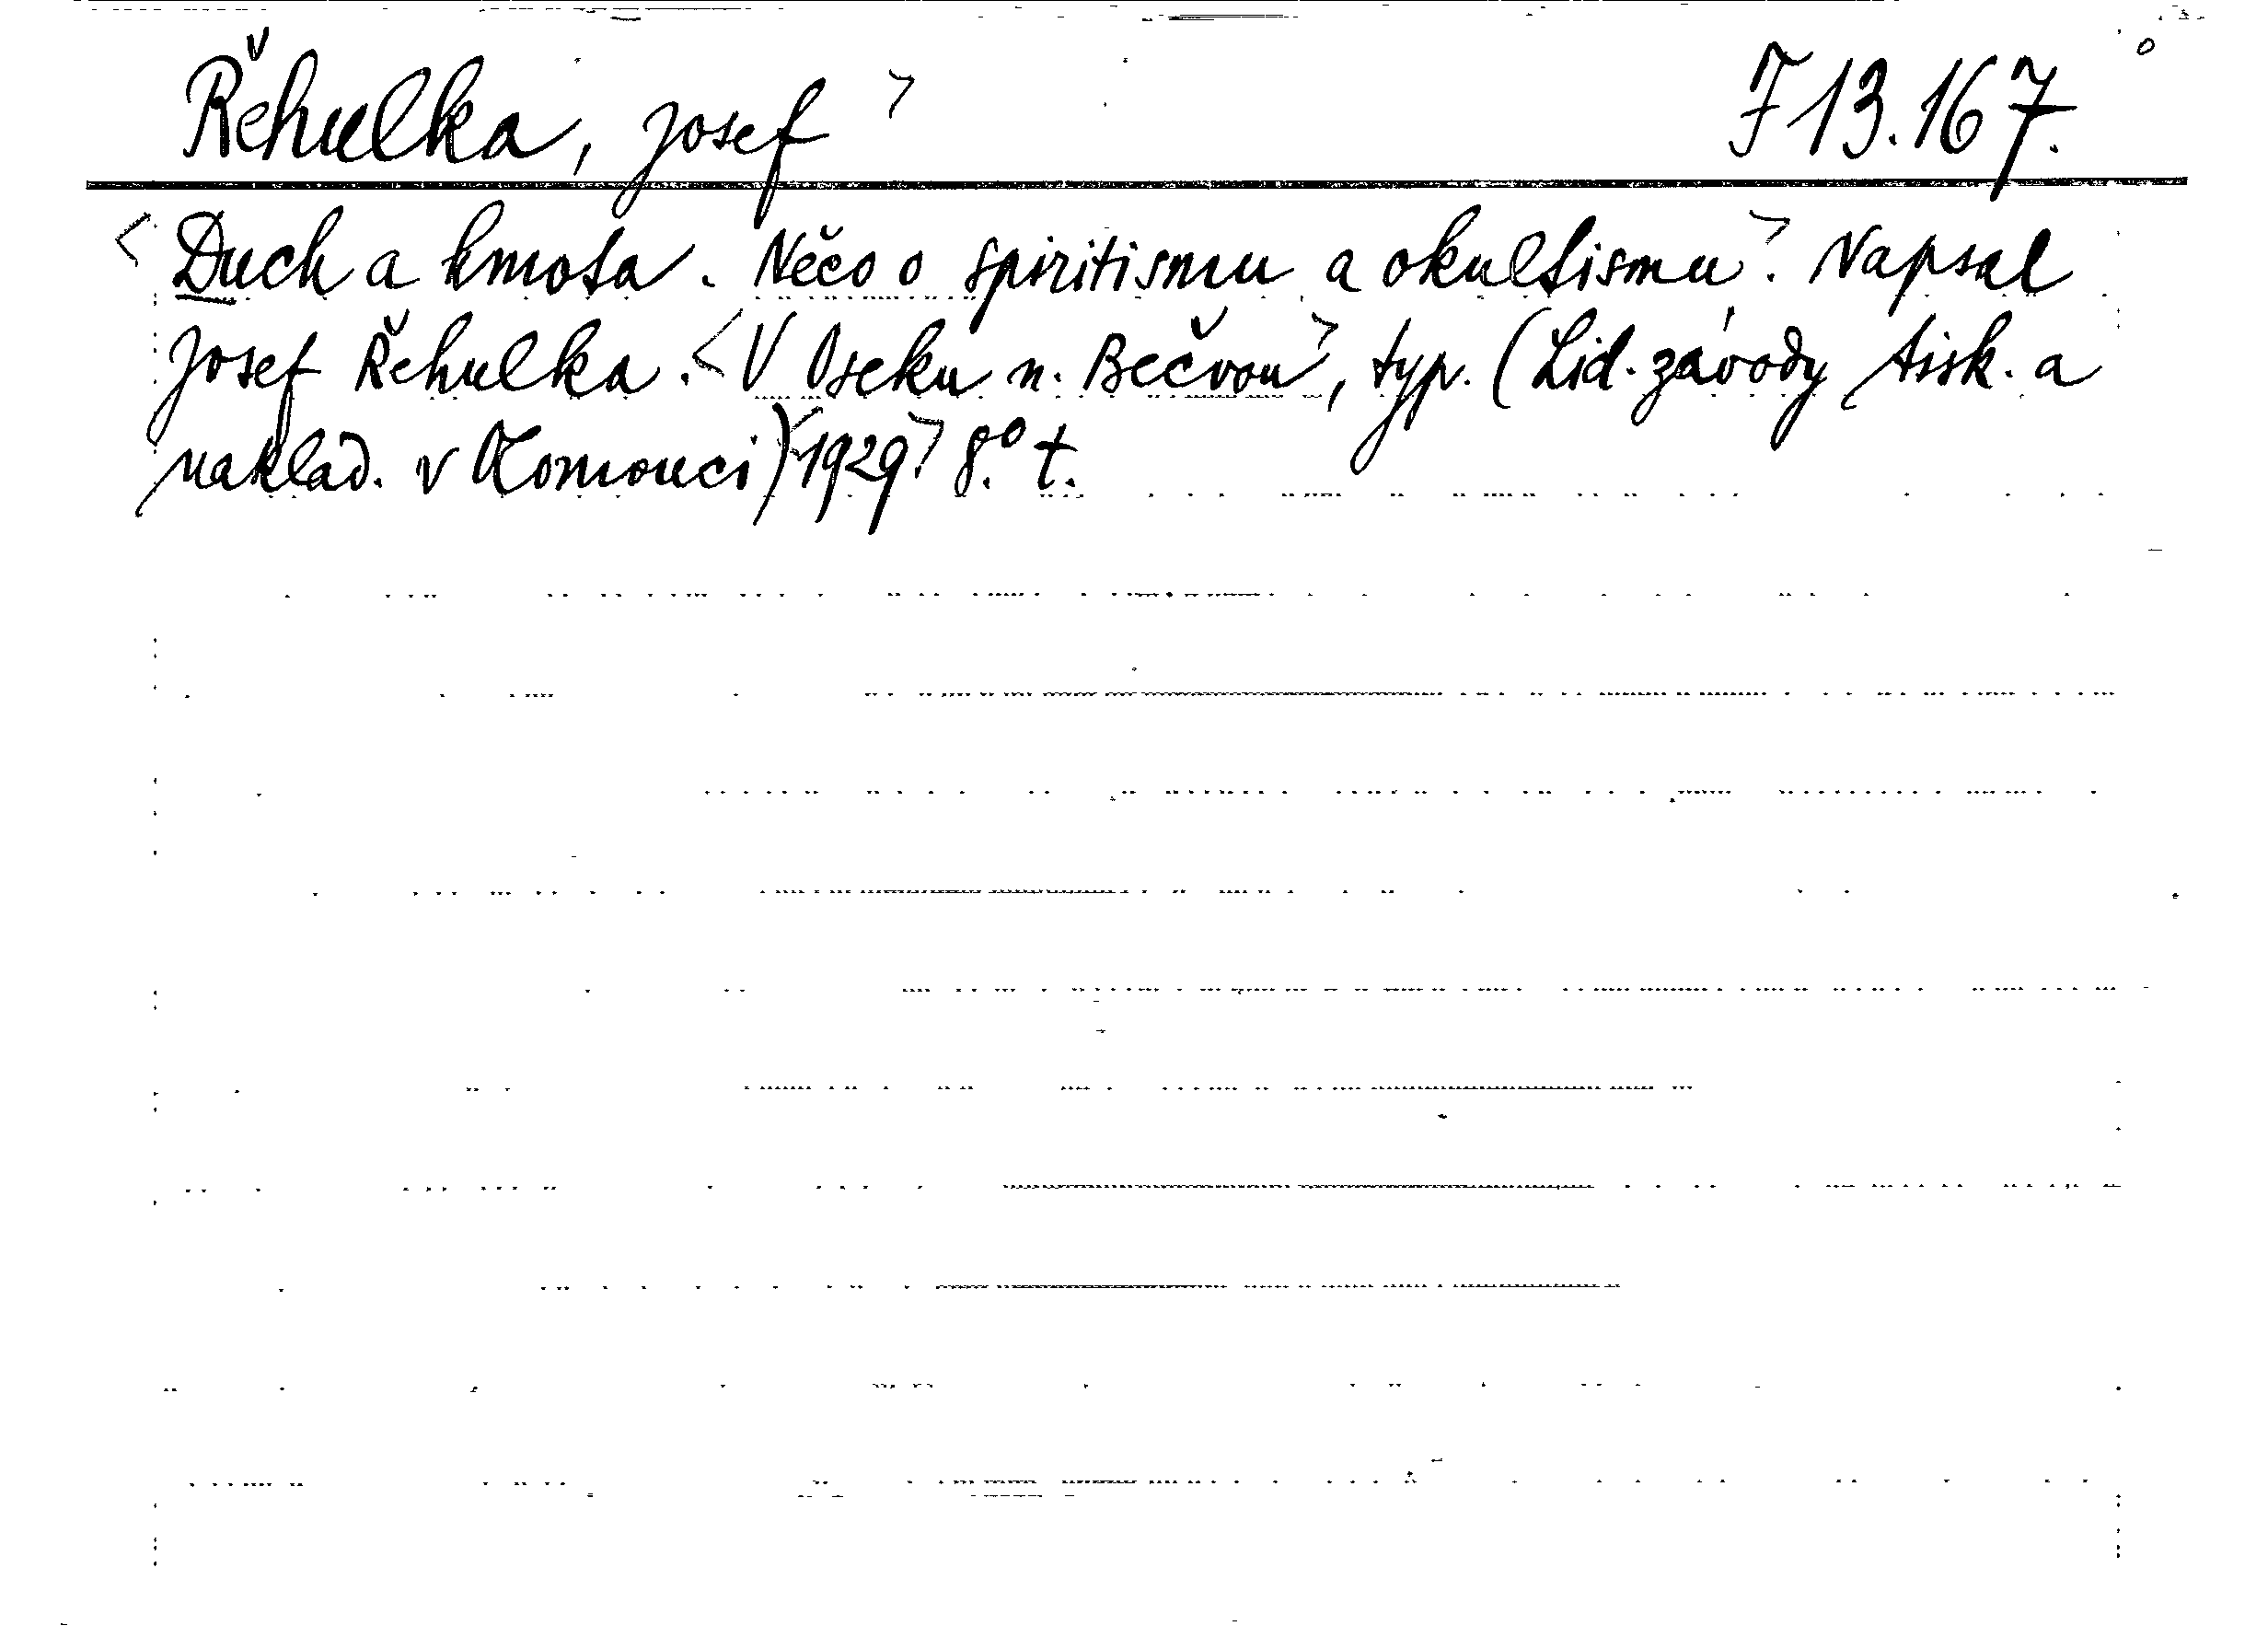 Řehulka, Josef > J 13.167.
<Duch a hmota. Něco o spiritismu a okultismu>. Napsal
Josef Řehulka. <V Oseku n. Bečvou>, typ. (Lid. závody tisk. a
naklad. v Olomouci) <1929>. 8.° t.